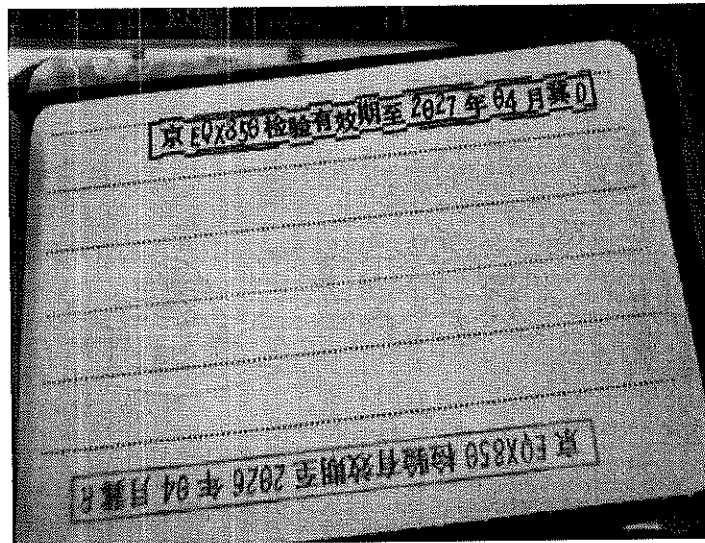 京EQX850检验有效期至2027年04月冀D
京EQX850检验有效期至2026年04月冀R